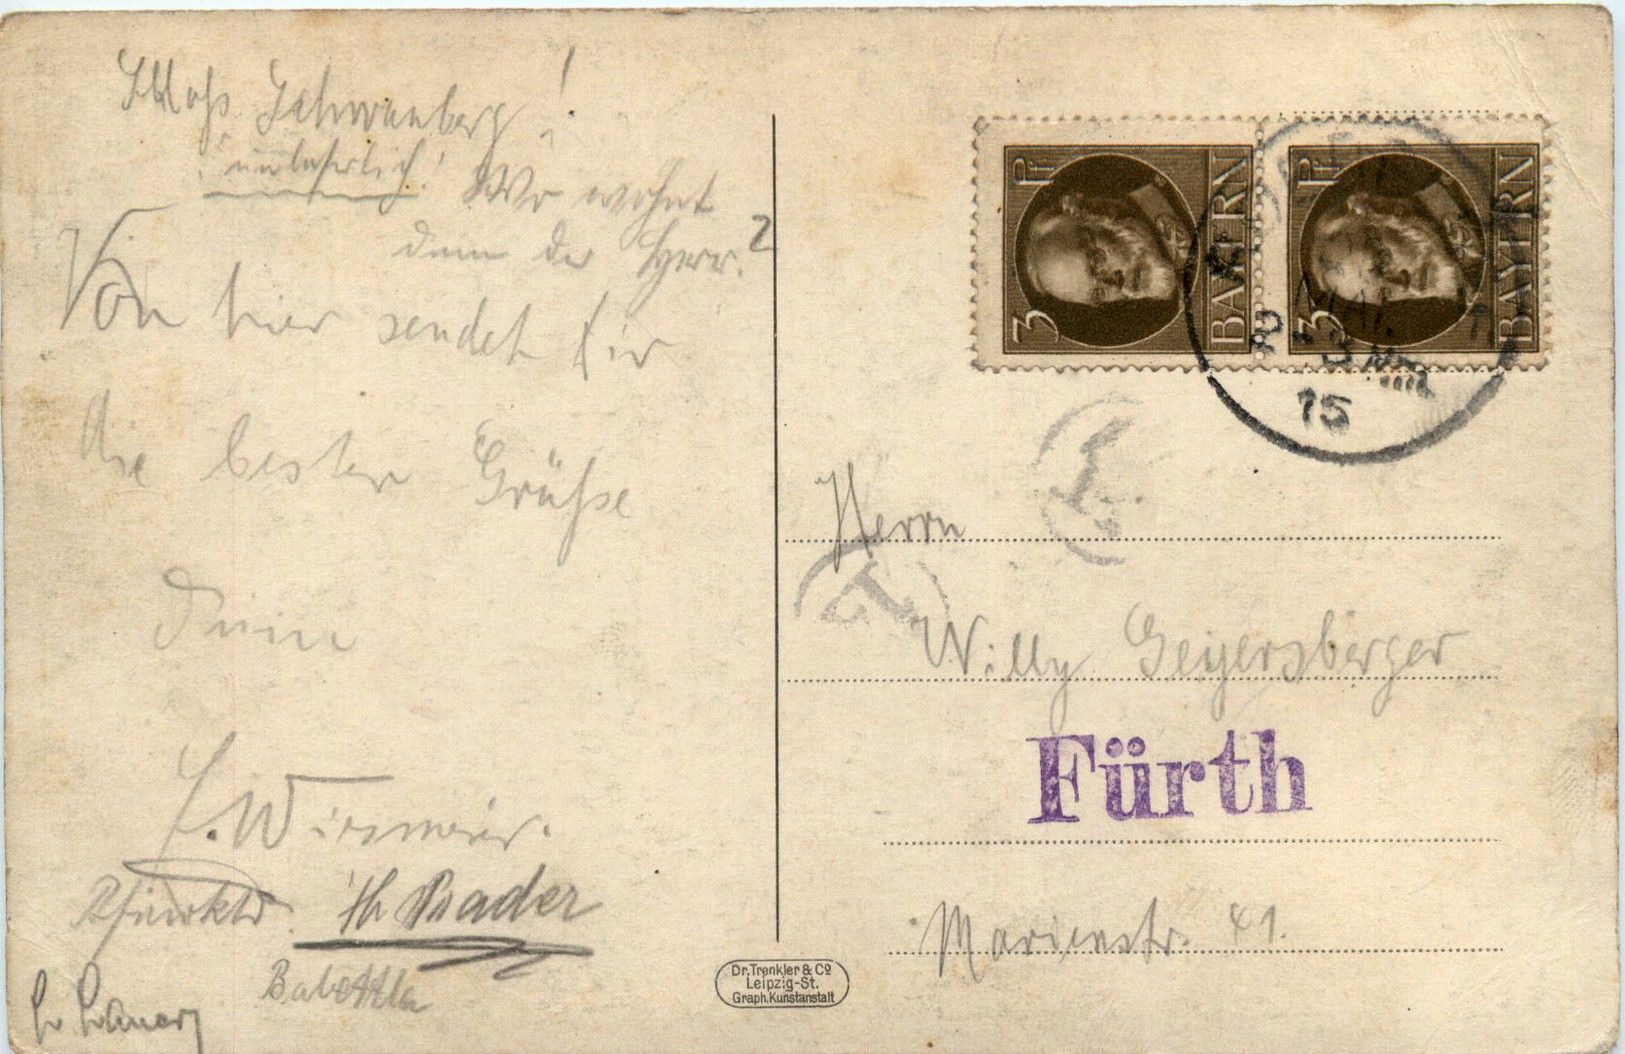 Schloß Schwanberg!
unleserlich! Wo wohnt
denn der Herr?
Von hier sendet Dir
die besten Grüße
Dein
Th Bader
Babettla
3 Pf BAYERN
3 Pf BAYERN
15
T
T
Herrn
Willy Geyersberger
Fürth
Marienstr. 41.
Dr. Trenkler & Co
Leipzig-St.
Graph. Kunstanstalt